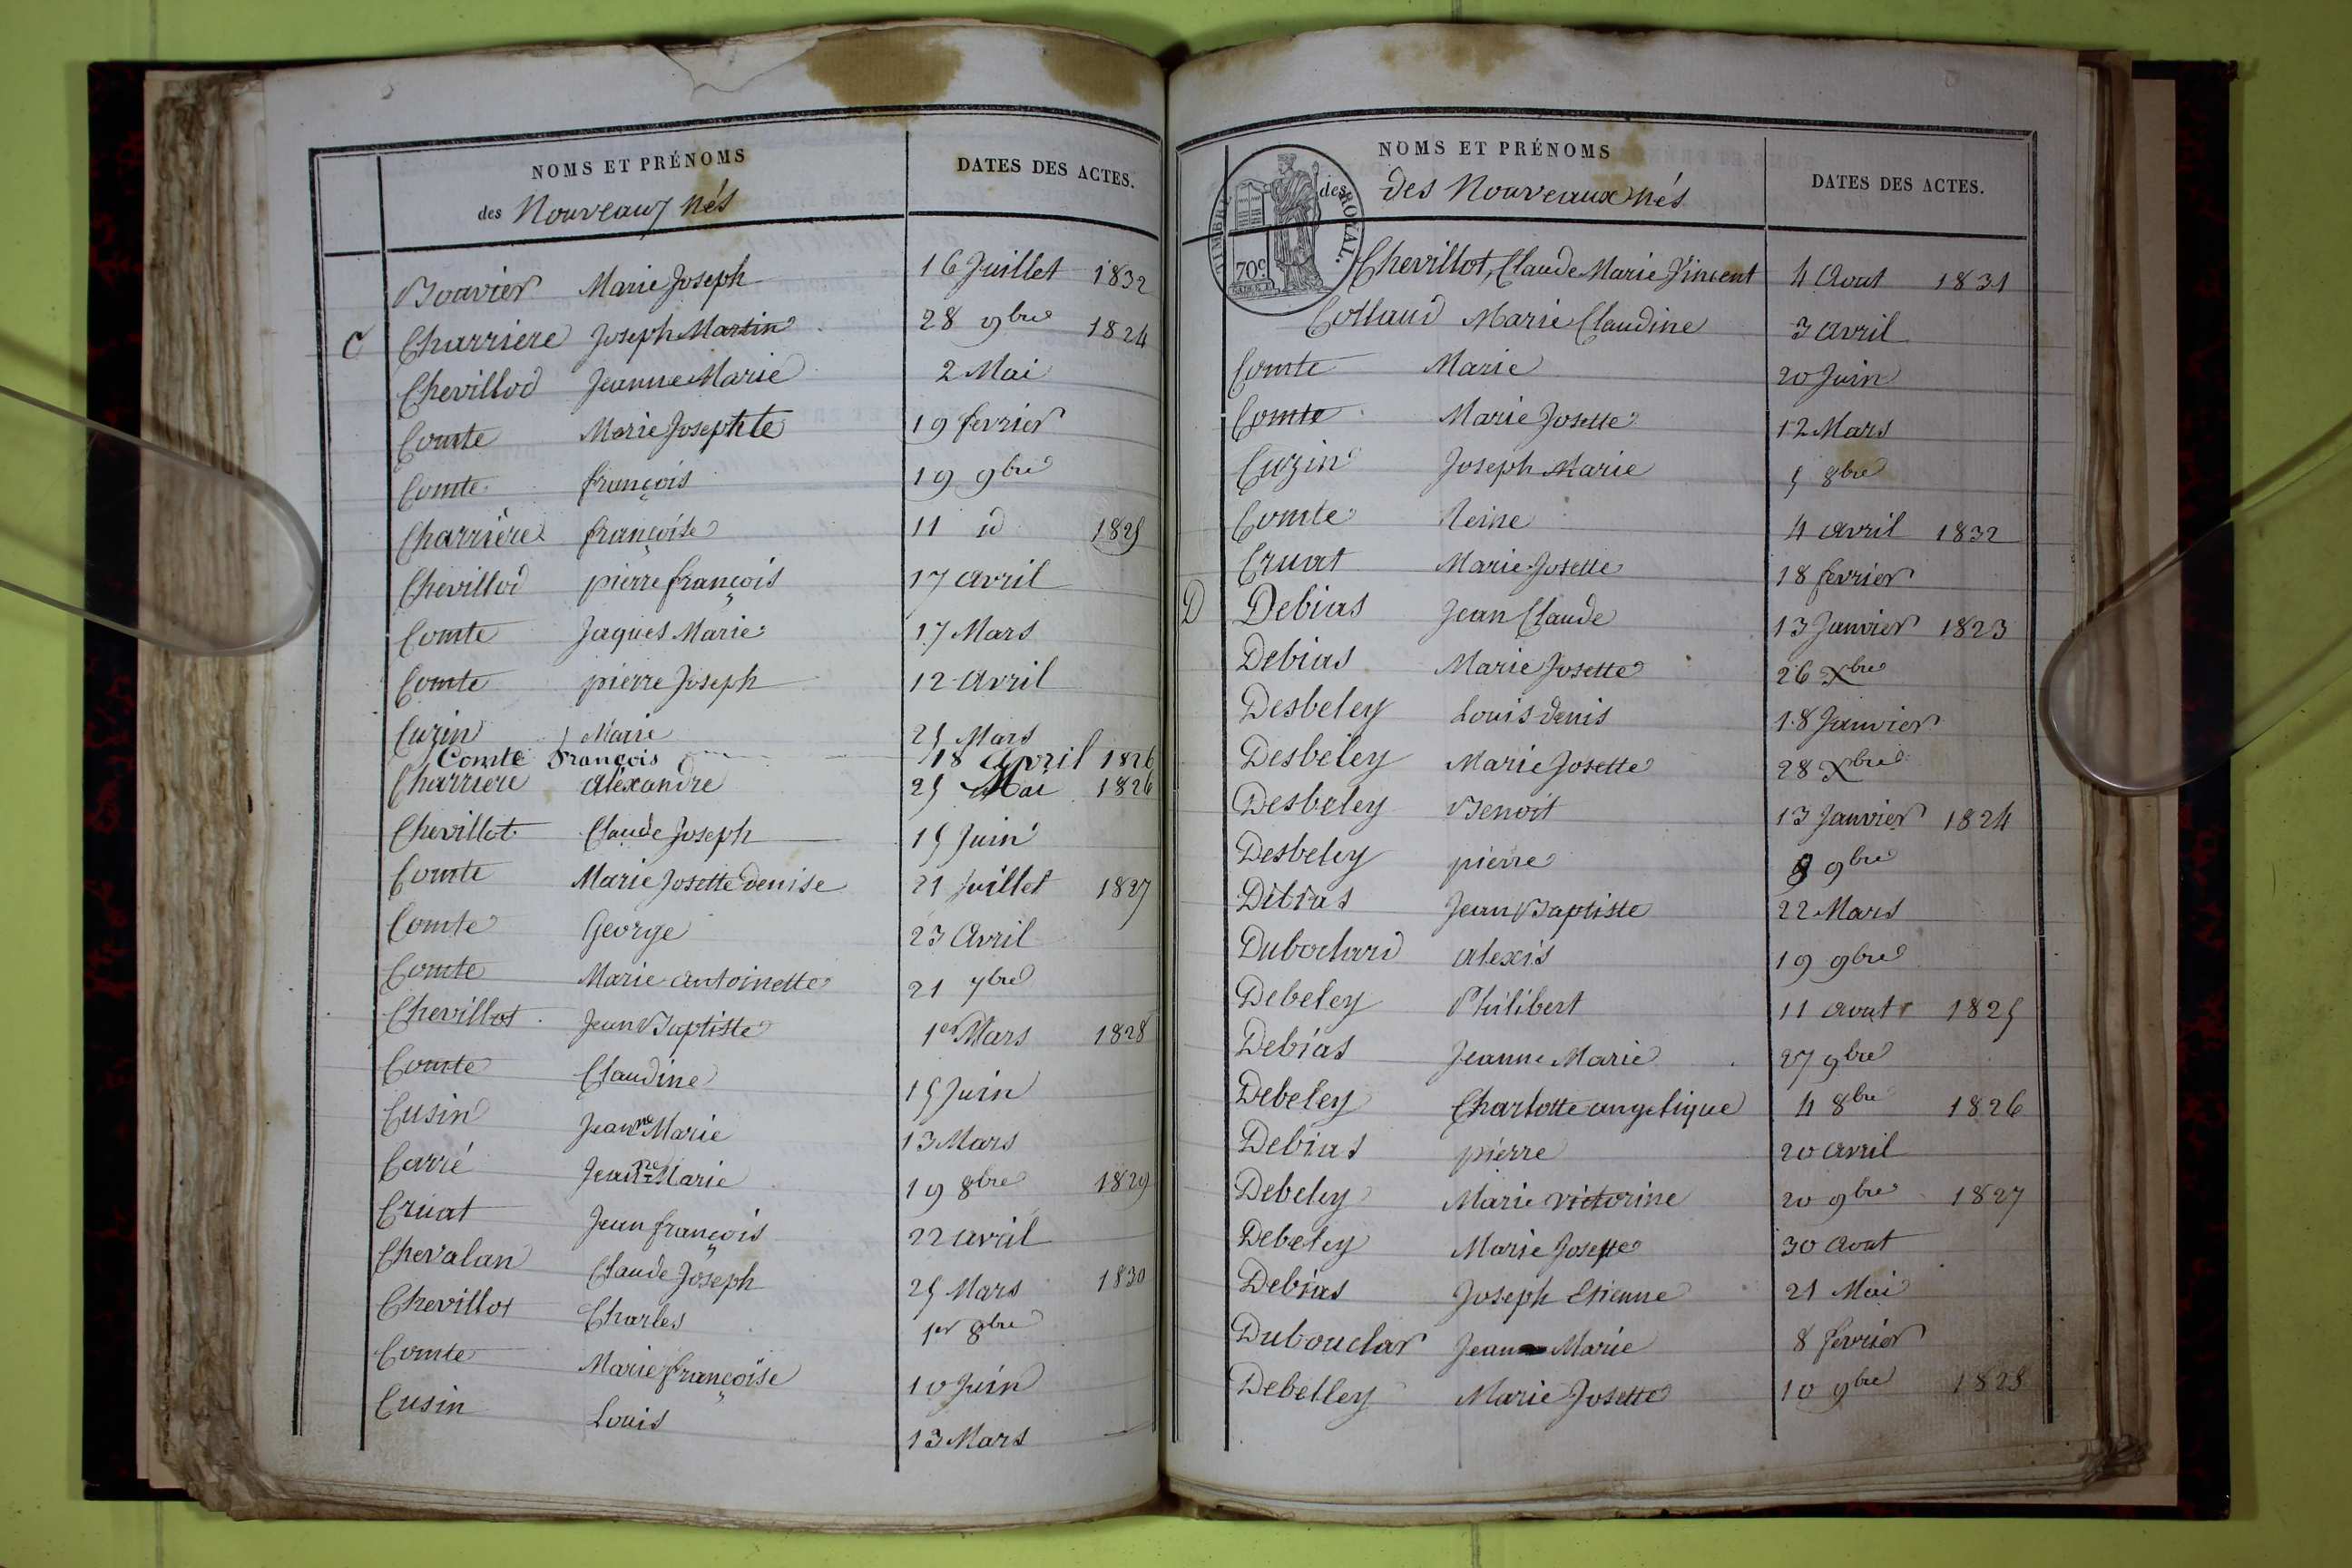 NOMS ET PRÉNOMS DATES DES ACTES.
des Nouveaux nés
Bouvier Marie Joseph 16 Juillet 1832
C Charriere Joseph Martin 28 9bre 1824
Chevillod Jeanne Marie 2 Mai
Comte Marie Josephte 19 fevrier
Comte françois 19 9bre
Charrière françoise 11 id 1825
Chevillod pierre françois 17 avril
Comte Jaques Marie 17 Mars
Comte pierre Joseph 12 avril
Cuzin Marie 25 Mars
Comte François 18 Avril 1826
Charriere alexandre 25 Mai 1826
Chevillot Claude Joseph 15 Juin
Comte Marie Josette denise 21 Juillet 1827
Comte George 23 Avril
Comte Marie antoinette 21 7bre
Chevillot Jean Baptiste 1er Mars 1828
Comte Claudine 15 Juin
Cusin Jeanne Marie 13 Mars
Carré Jeanne Marie 19 8bre 1829
Cruat Jean françois 22 avril
Chevalan Claude Joseph 25 Mars 1830
Chevillot Charles 1er 8bre
Comte Marie françoise 10 Juin
Cusin Louis 13 Mars
NOMS ET PRÉNOMS DATES DES ACTES.
des des Nouveaux nés
TIMBRE ROYAL.
70c
Chevillot, Claude Marie Vincent 4 Aout 1831
Collaud Marie Claudine 3 avril
Comte Marie 20 Juin
Comte Marie Josette 12 Mars
Cuzin Joseph Marie 5 8bre
Comte Reine 4 avril 1832
Cruat Marie Josette 18 fevrier
D Debias Jean Claude 13 Janvier 1823
Debias Marie Josette 26 Xbre
Desbeley Louis denis 18 Janvier
Desbeley Marie Josette 28 Xbre
Desbeley Benoit 13 Janvier 1824
Desbeley pierre 9bre
Debias Jean Baptiste 22 Mars
Dubochard alexis 19 9bre
Debeley Philibert 11 aout 1825
Debias Jeanne Marie 27 9bre
Debeley Charlotte angelique 4 8bre 1826
Debias pierre 20 avril
Debeley Marie victorine 20 9bre 1827
Debeley Marie Josette 30 Aout
Debias Joseph Etienne 21 Mai
Dubouclar Jean Marie 8 fevrier
Debelley Marie Josette 10 9bre 1828